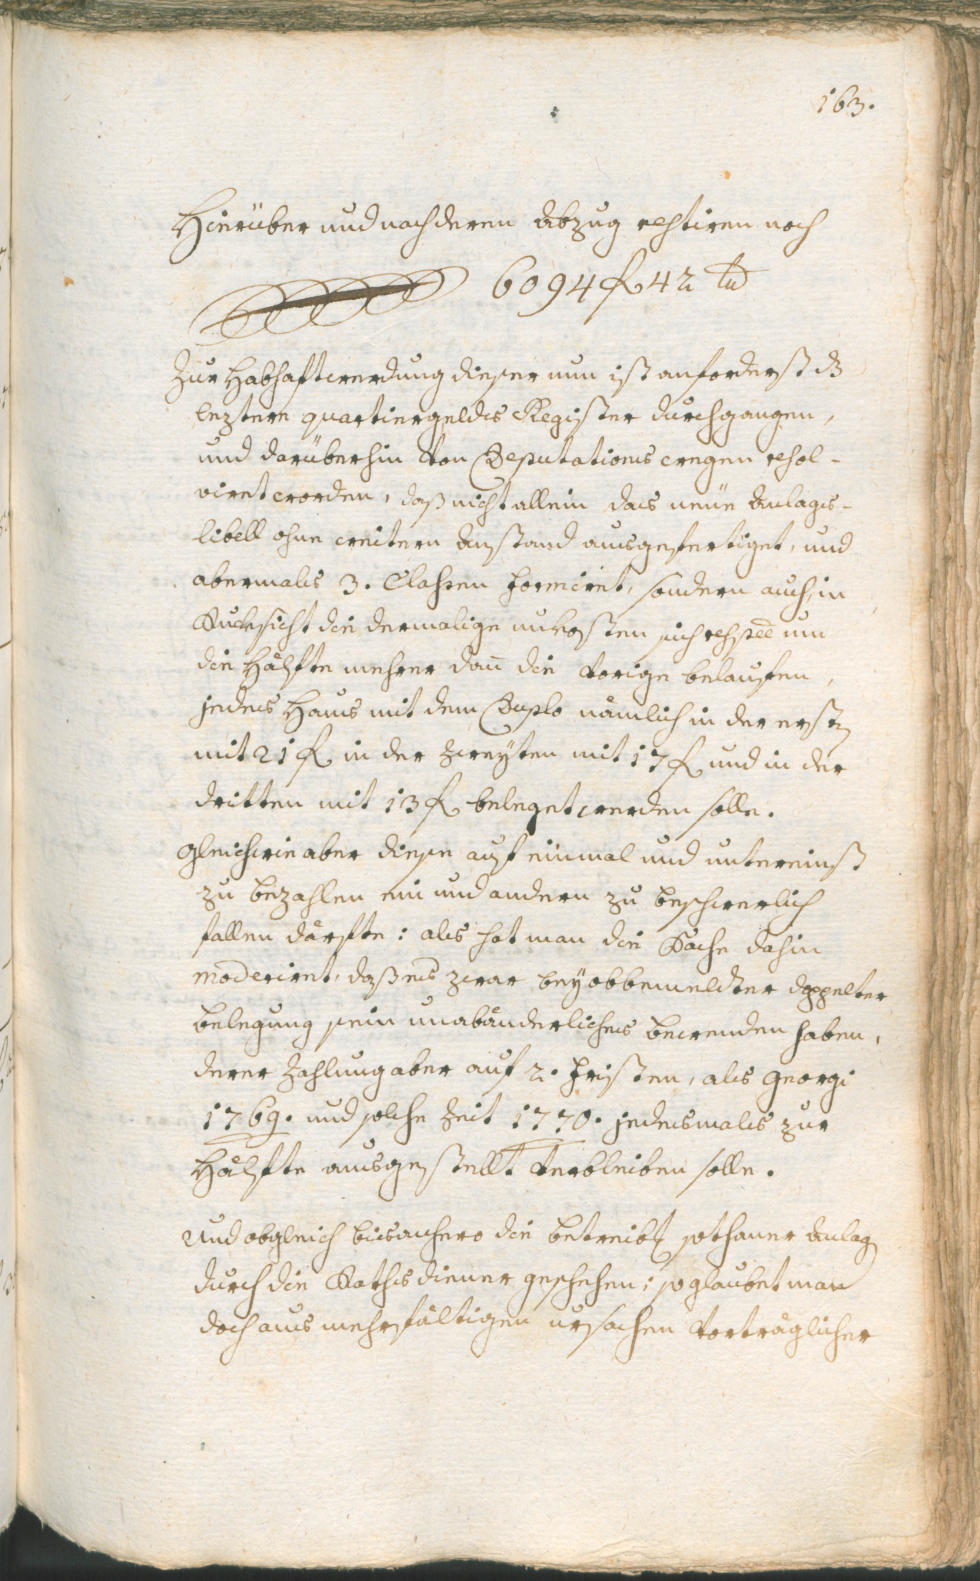 163.
Hierüber und nach deren Abzug restiren noch
6094 f 42 xr
Zur Habhaftwerdung dieser nun ist anforderst dz
leztere quartiergelds Register durchgangen,
und darüberhin von Deputations wegen resol-
virt worden, daß nicht allein das neüe Anlags-
libell ohne weitern Anstand ausgefertiget, und
abermals 3. Classen formirt, sondern auch, in
Rucksicht die dermalige unkosten sich respee um
die Hälfte mehrer dañ die vorige belaufen,
jedes Haus mit dem Duplo nämlich in der ersten
mit 21 f in der zweÿten mit 17 f und in der
dritten mit 13 f beleget werden solle.
Gleichwie aber diese auf einmal und untereinst
zu bezahlen ein und andern zu beschwerlich
fallen därfte: als hat man die Sache dahin
moderirt, daß es zwar beÿ obbemeldter doppelter
belegung sein unabänderliches bewenden haben,
derer Zahlung aber auf 2. fristen, als Georgi
1769. und solche Zeit 1770. jedesmals zur
Hälfte ausgestellt verbleiben solle.
Und obgleich bis anhero die betreibung sothaner Anlag
durch die Raths diener geschehen: so glaubet man
doch aus mehrfältigen ursachen vorträglicher